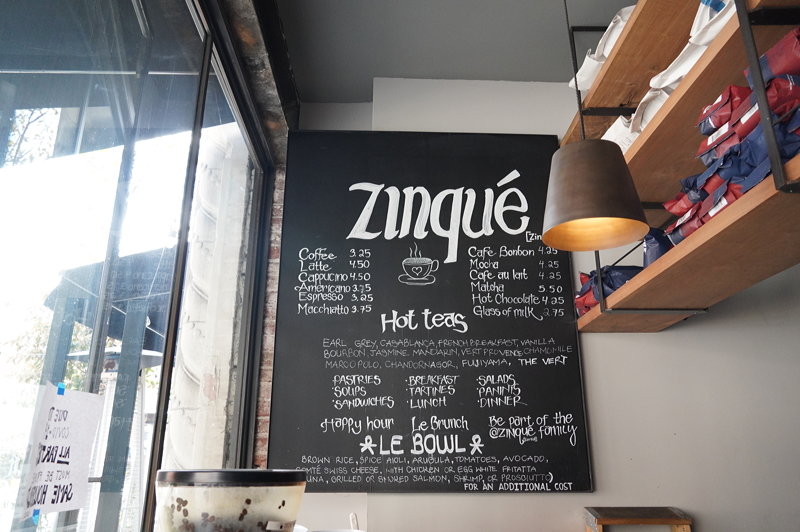 Zinqué
Coffee 3.25
Latte 4.50
Cappucino 4.50
Americano 3.75
Espresso 3.25
Macchiatto 3.75
Cafe Bonbon 4.25
Mocha 4.25
Cafe au lait 4.25
Matcha 5.50
Hot Chocolate 4.25
Glass of milk 2.75
Hot teas
EARL GREY, CASABLANCA, FRENCH BREAKFAST, VANILLA
BOURBON, JASMINE MANDARIN, VERT PROVENCE CHAMOMILE
MARCO POLO, CHANDORNAGOR, FUJIYAMA, THE VERT
·PASTRIES ·BREAKFAST ·SALADS
·SOUPS ·TARTINES ·PANINIS
·SANDWICHES ·LUNCH ·DINNER
Happy hour Le Brunch Be part of the
@ZINQUE family
LE BOWL
BROWN RICE, SPICE AIOLI, ARUGULA, TOMATOES, AVOCADO,
COMTÉ SWISS CHEESE, WITH CHICKEN OR EGG WHITE FRITATTA
TUNA, GRILLED OR SMOKED SALMON, SHRIMP, OR PROSCIUTTO)
FOR AN ADDITIONAL COST
DUE TO
COVID-19
ALL
MUST BE
SAME